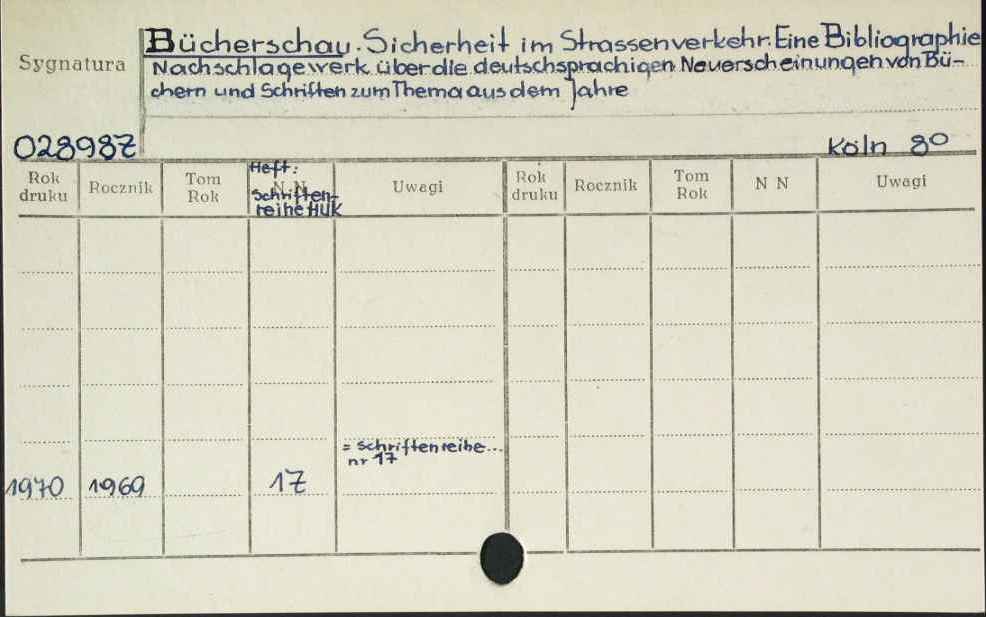 Sygnatura
Bücherschau. Sicherheit im Strassenverkehr. Eine Bibliographie
Nachschlagewerk über die deutschsprachigen Neuerscheinungen von Bü-
chern und Schriften zum Thema aus dem Jahre
028987 Köln 8°
Rok druku Rocznik Tom Rok N N Uwagi Rok druku Rocznik Tom Rok N N Uwagi
Heft:
Schriften-
reihe HUK
= Schriftenreihe...
nr 17
1970 1969 17